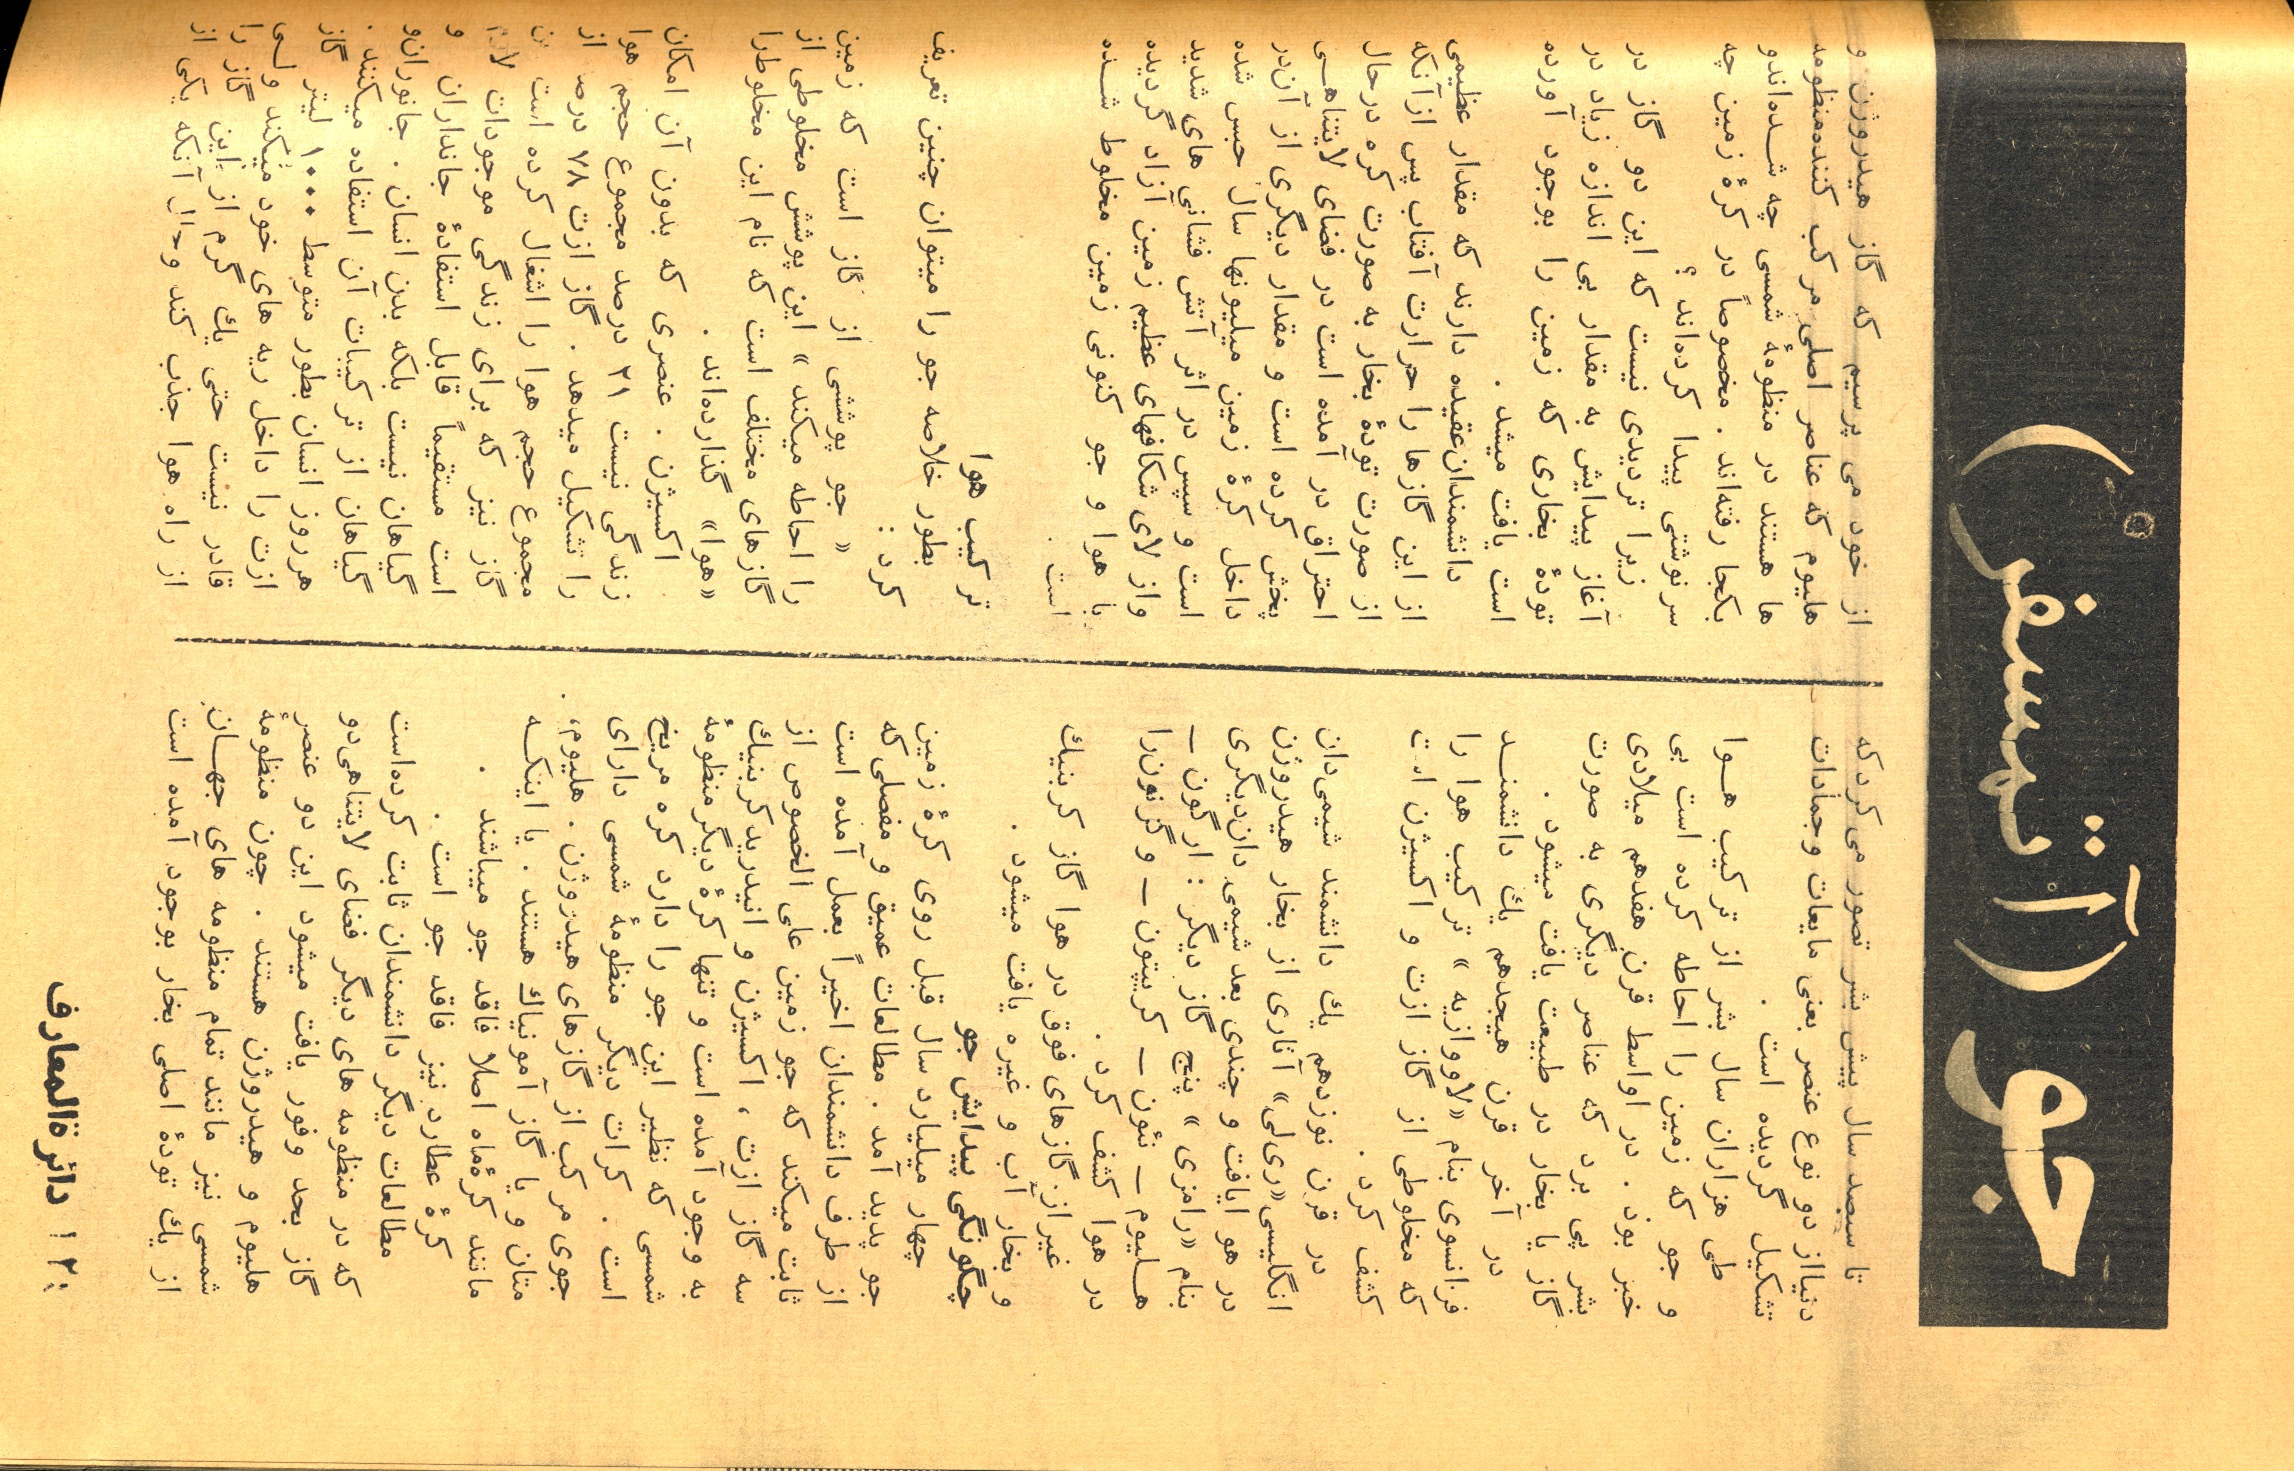 جو (آتمسفر)
تا سیصد سال پیش بشر تصور می کرد که
دنیا از دو نوع عنصر یعنی مایعات وجمادات
تشکیل گردیده است .
طی هزاران سال بشر از ترکیب هـوا
و جو که زمین را احاطه کرده است بی
خبر بود . در اواسط قرن هفدهم میلادی
بشر پی برد که عناصر دیگری به صورت
گاز یا بخار در طبیعت یافت میشود .
در آخر قرن هیجدهم یك دانشمنـد
فرانسوی بنام «لاووازیه» ترکیب هوا را
که مخلوطی از گاز ازت و اکسیژن است
کشف کرد .
در قرن نوزدهم یك دانشمند شیمی‌دان
انگلیسی«ری‌لی» آثاری از بخار هیدروژن
در هوا یافت و چندی بعد شیمی دان‌دیگری
بنام «رامزی» پنج گاز دیگر : ارگون –
هـلیوم – نئون – کریپتون – و گزنون‌را
در هوا کشف کرد .
غیراز گازهای فوق در هوا گاز کربنیك
و بخار آب و غیره یافت میشود .
چگونگی پیدایش جو
چهار میلیارد سال قبل روی کرۀ زمین
جو پدید آمد . مطالعات عمیق و مفصلی که
از طرف دانشمندان اخیراً بعمل آمده است
ثابت میکند که جو زمین علی الخصوص از
سه گاز ازت ، اکسیژن و انیدرید کربنیك
به وجود آمده است و تنها کرۀ دیگر منظومۀ
شمسی که نظیر این جو را دارد کره مریخ
است . کرات دیگر منظومۀ شمسی دارای
جوی مرکب از گازهای هیدروژن . هلیوم،
متان و یا گاز آمونیاك هستند . یا اینکـه
مانند کرۀ‌ماه اصلا فاقد جو میباشند .
کرۀ عطارد نیز فاقد جو است .
مطالعات دیگر دانشمندان ثابت کرده‌است
که در منظومه های دیگر فضای لایتناهی‌دو
گاز بحد وفور یافت میشود این دو عنصر
هلیوم و هیدروژن هستند . چون منظومۀ
شمسی نیز مانند تمام منظومه های جهـان
از یك تودۀ اصلی بخار بوجود آمده است
از خود می پرسیم که گاز هیدروژن و
هلیوم که عناصر اصلی مرکب کننده‌منظومه
ها هستند در منظومۀ شمسی چه شـده‌اندو
بکجا رفته‌اند . مخصوصاً در کرۀ زمین چه
سرنوشتی پیدا کرده‌اند ؟
زیرا تردیدی نیست که این دو گاز در
آغاز پیدایش به مقدار بی اندازه زیاد در
تودۀ بخاری که زمین را بوجود آورده
است یافت میشد .
دانشمندان‌عقیده دارند که مقدار عظیمی
از این گازها را حرارت آفتاب پس ازآنکه
از صورت تودۀ بخار به صورت کره درحال
احتراق در آمده است در فضای لایتناهـی
پخش کرده است و مقدار دیگری از آن‌در
داخل کرۀ زمین میلیونها سال حبس شده
است و سپس در اثر آتش فشانی های شدید
واز لای شکافهای عظیم زمین آزاد گردیده
با هوا و جو کنونی زمین مخلوط شـده
است .
ترکیب هوا
بطور خلاصه جو را میتوان چنین تعریف
کرد :
« جو پوششی از گاز است که زمین
را احاطه میکند » این پوشش مخلوطی از
گازهای مختلف است که نام این مخلوط‌را
«هوا» گذارده‌اند .
اکسیژن . عنصری که بدون آن امکان
زندگی نیست ۲۱ درصد مجموع حجم هوا
را تشکیل میدهد . گاز ازت ۷۸ درصد از
مجموع حجم هوا را اشغال کرده است این
گاز نیز که برای زندگی موجودات لازم
است مستقیماً قابل استفادۀ جانداران و
گیاهان نیست بلکه بدن انسان . جانوران‌و
گیاهان از ترکیبات آن استفاده میکنند .
هرروز انسان بطور متوسط ۱۰۰۰ لیتر گاز
ازت را داخل ریه های خود میکند ولـی
قادر نیست حتی یك گرم از این گاز را
از راه هوا جذب کند وحال آنکه یکی از
۱۲۰ دائرةالمعارف